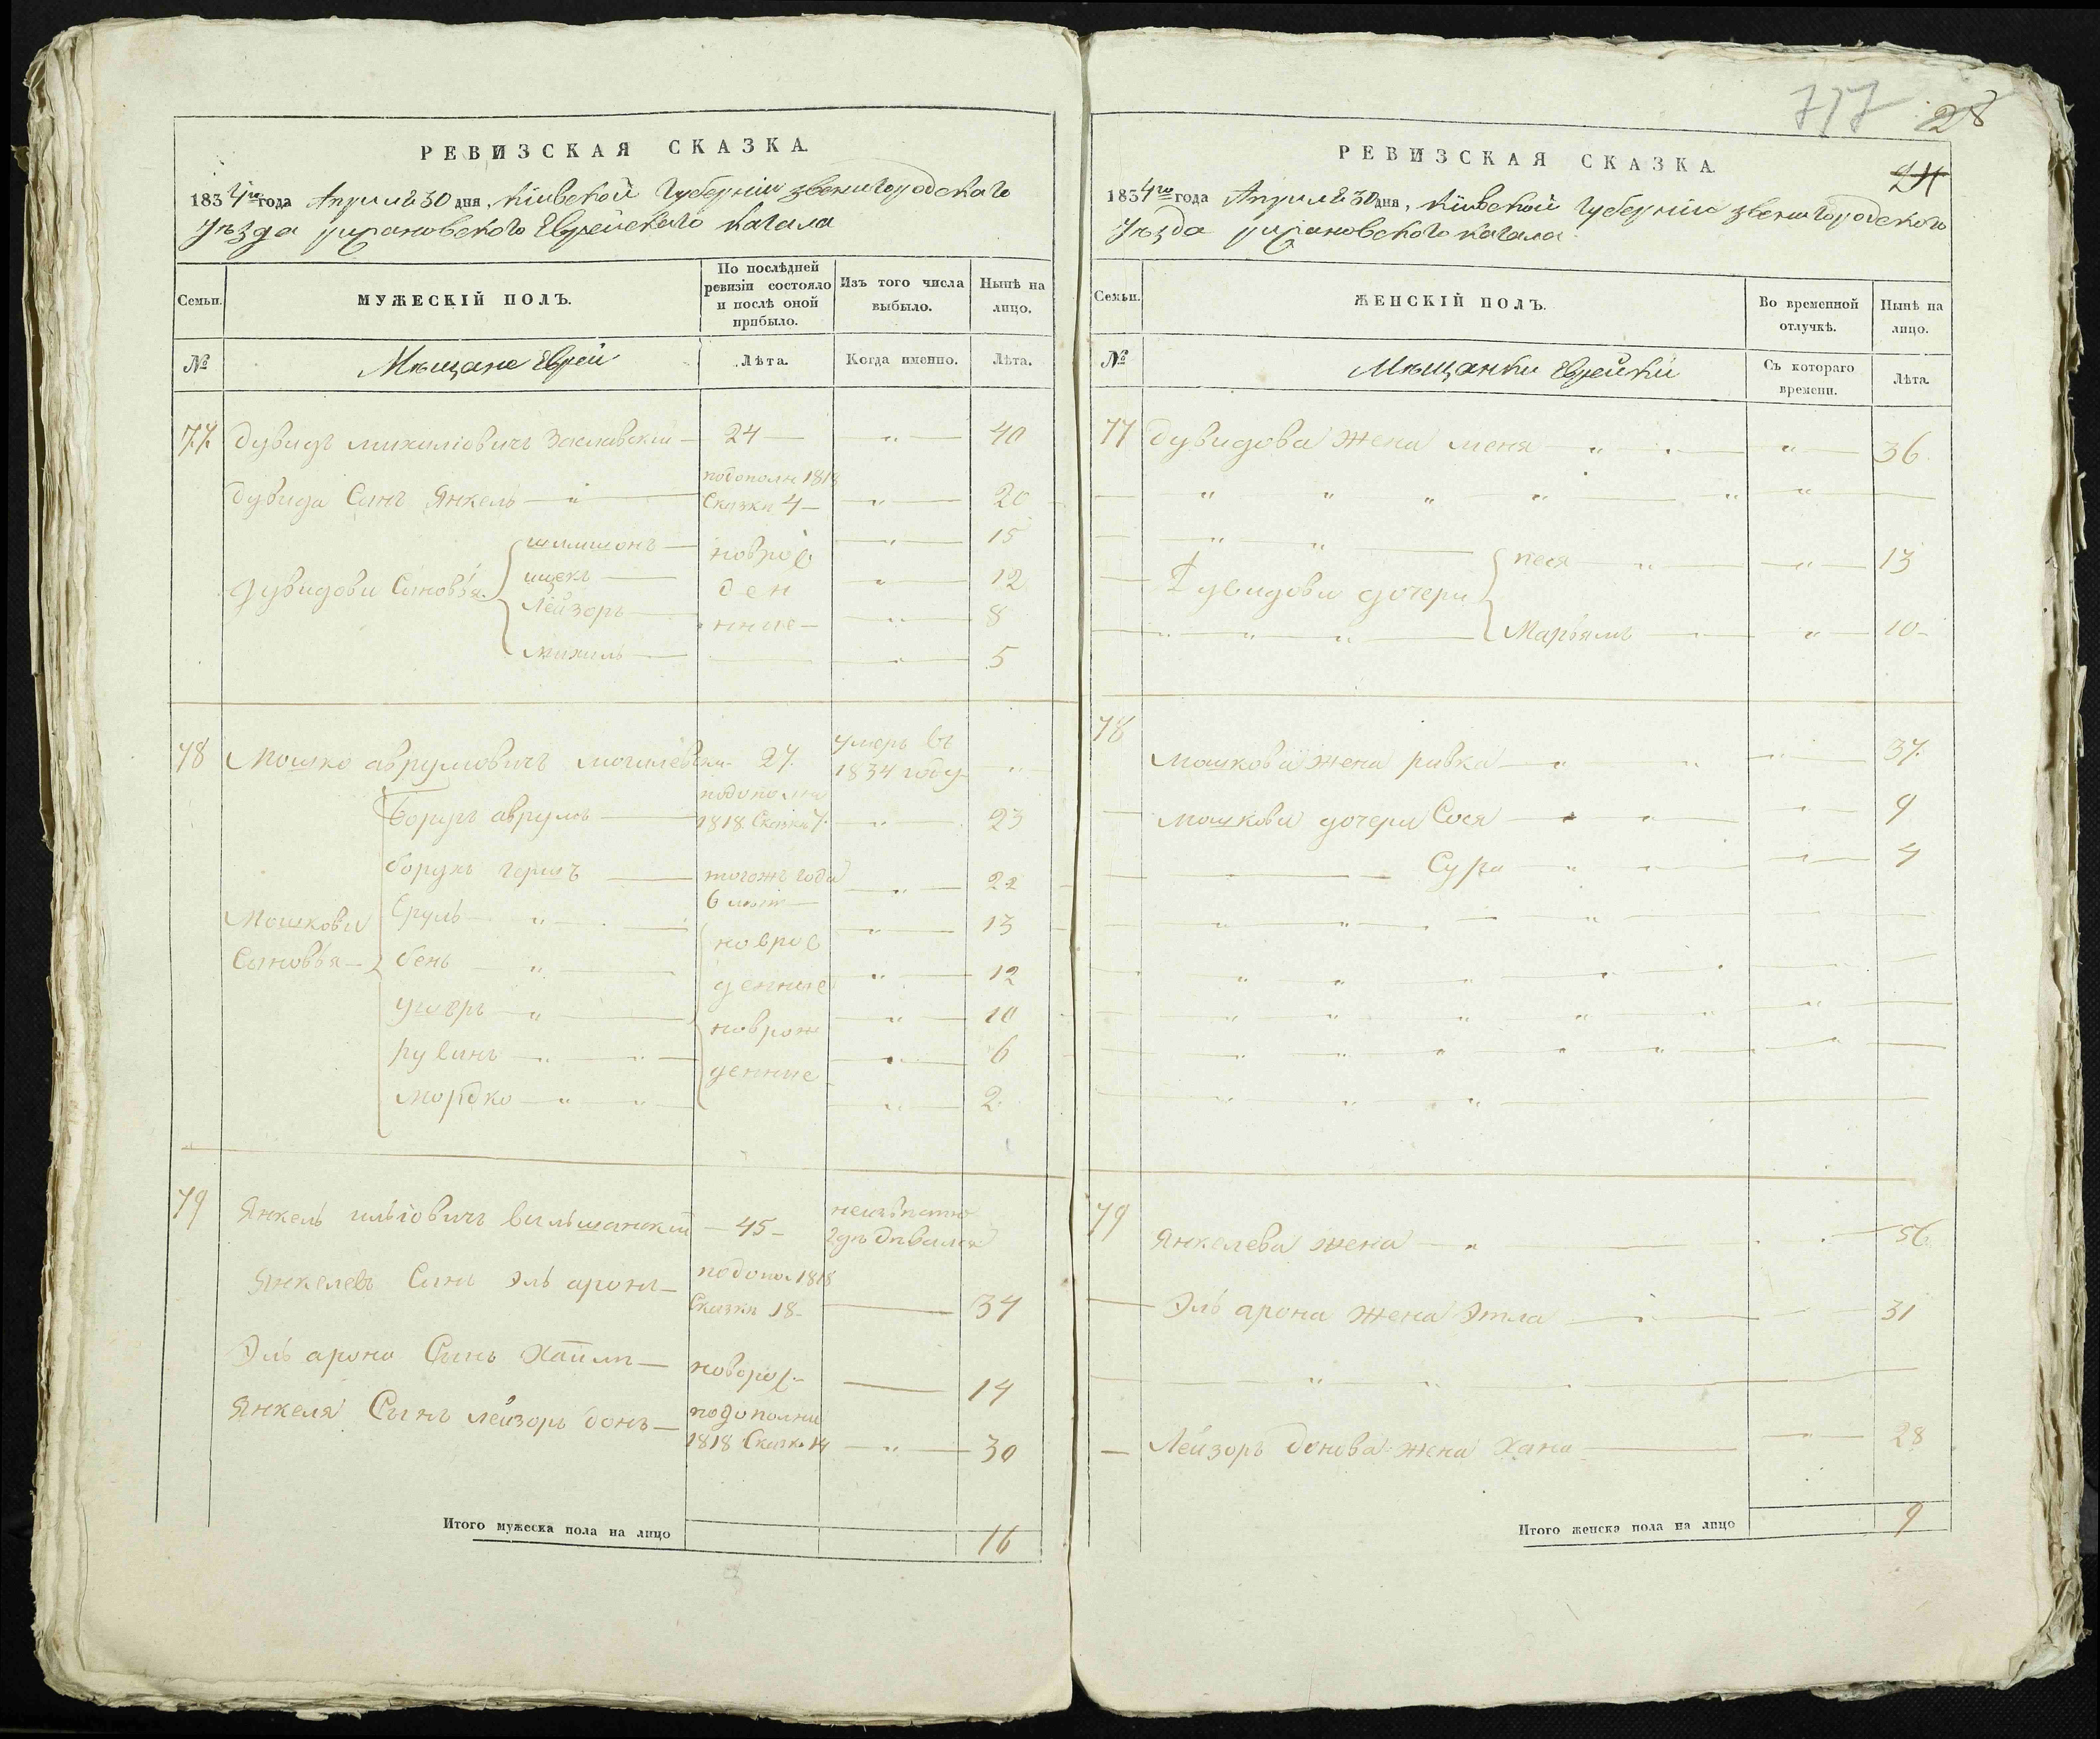 РЕВИЗСКАЯ СКАЗКА.
1834го года Апреля 30 дня, Кіевской Губерніи Звенигородского
Уѣзда Еврейского Кагала
Семьи.
МУЖЕСКІЙ ПОЛЪ.
По послѣдней ревизіи состояло и послѣ оной прибыло.
Изъ того числа выбыло.
Нынѣ на лицо.
№
Мѣщане Евреи
Лѣта.
Когда именно.
Лѣта.
77 Дувидъ Михилiовичъ Заславский — 24 — " — 40
Дувида Сынъ Янкель — " — 1818 Сказки 4 — " — 20
Шлимонъ — " — 15
Ицекъ — " — 12
Дувидови Синовья Лейзоръ — новрожденние — " — 8
Михиль — " — 5
78 Мошко Аврумовичъ — 27. умеръ въ 1834 году "
Борухъ Аврумъ — 1818 Сказки 7. " — 23
Борухъ Гершъ — тогожъ года 6 лѣт — " — 22
Мошкови Сруль — " — 13
Синовья — Бень — " — новрожденние " — 12
Ушеръ — " — " — 10
Рувинъ — " — новрожденние " — 6
Мордко — " — " — 2
79 Янкель Ильiовичъ Вильшанский — 45 — неизвѣстно гдѣ дѣвался
Янкелевъ Синъ Эль Аронъ — 1818 Сказки 18 — 34
Эль Арона Синъ Хаимъ — новорож — 14
Янкеля Сынъ Лейзоръ Бонъ — 1818 Сказк. 14 — " — 30
Итого мужеска пола на лицо 16
717 28
24
РЕВИЗСКАЯ СКАЗКА.
1834го года Апреля 30 дня, Кіевской Губерніи Звенигородского
Уѣзда Кагала
Семьи.
ЖЕНСКІЙ ПОЛЪ.
Во временной отлучкѣ.
Нынѣ на лицо.
№
Мѣщанки Еврейки
Съ котораго времени.
Лѣта.
77 Дувидова Жена Меня — " — 36
Песя — " — 13
Дувидови дочери
Марьямъ — " — 10
78
Мошкова жена Ривка — " — 37.
Мошкови дочери Сося — " — 9
Сура — " — 4
79
Янкелева жена — " — 56
Эль Арона Жена Этла — 31
Лейзоръ Бонова жена Хана — 28
Итого женска пола на лицо 9